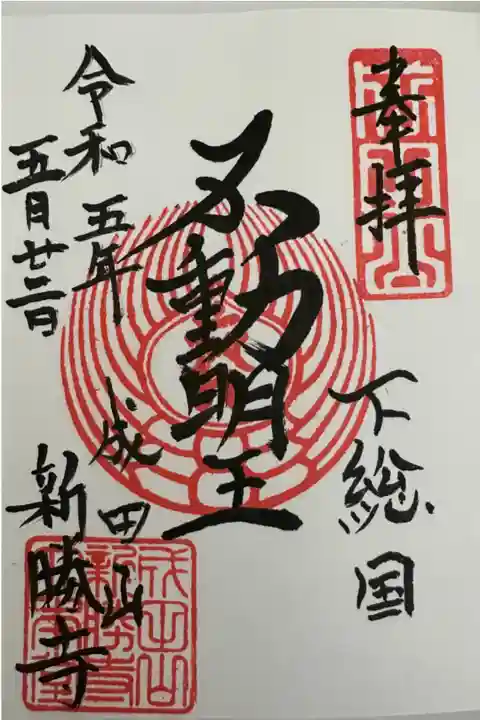 奉拝
下総国
不動明王
成田山
新勝寺
令和五年
五月廿三日
成田山
新勝寺